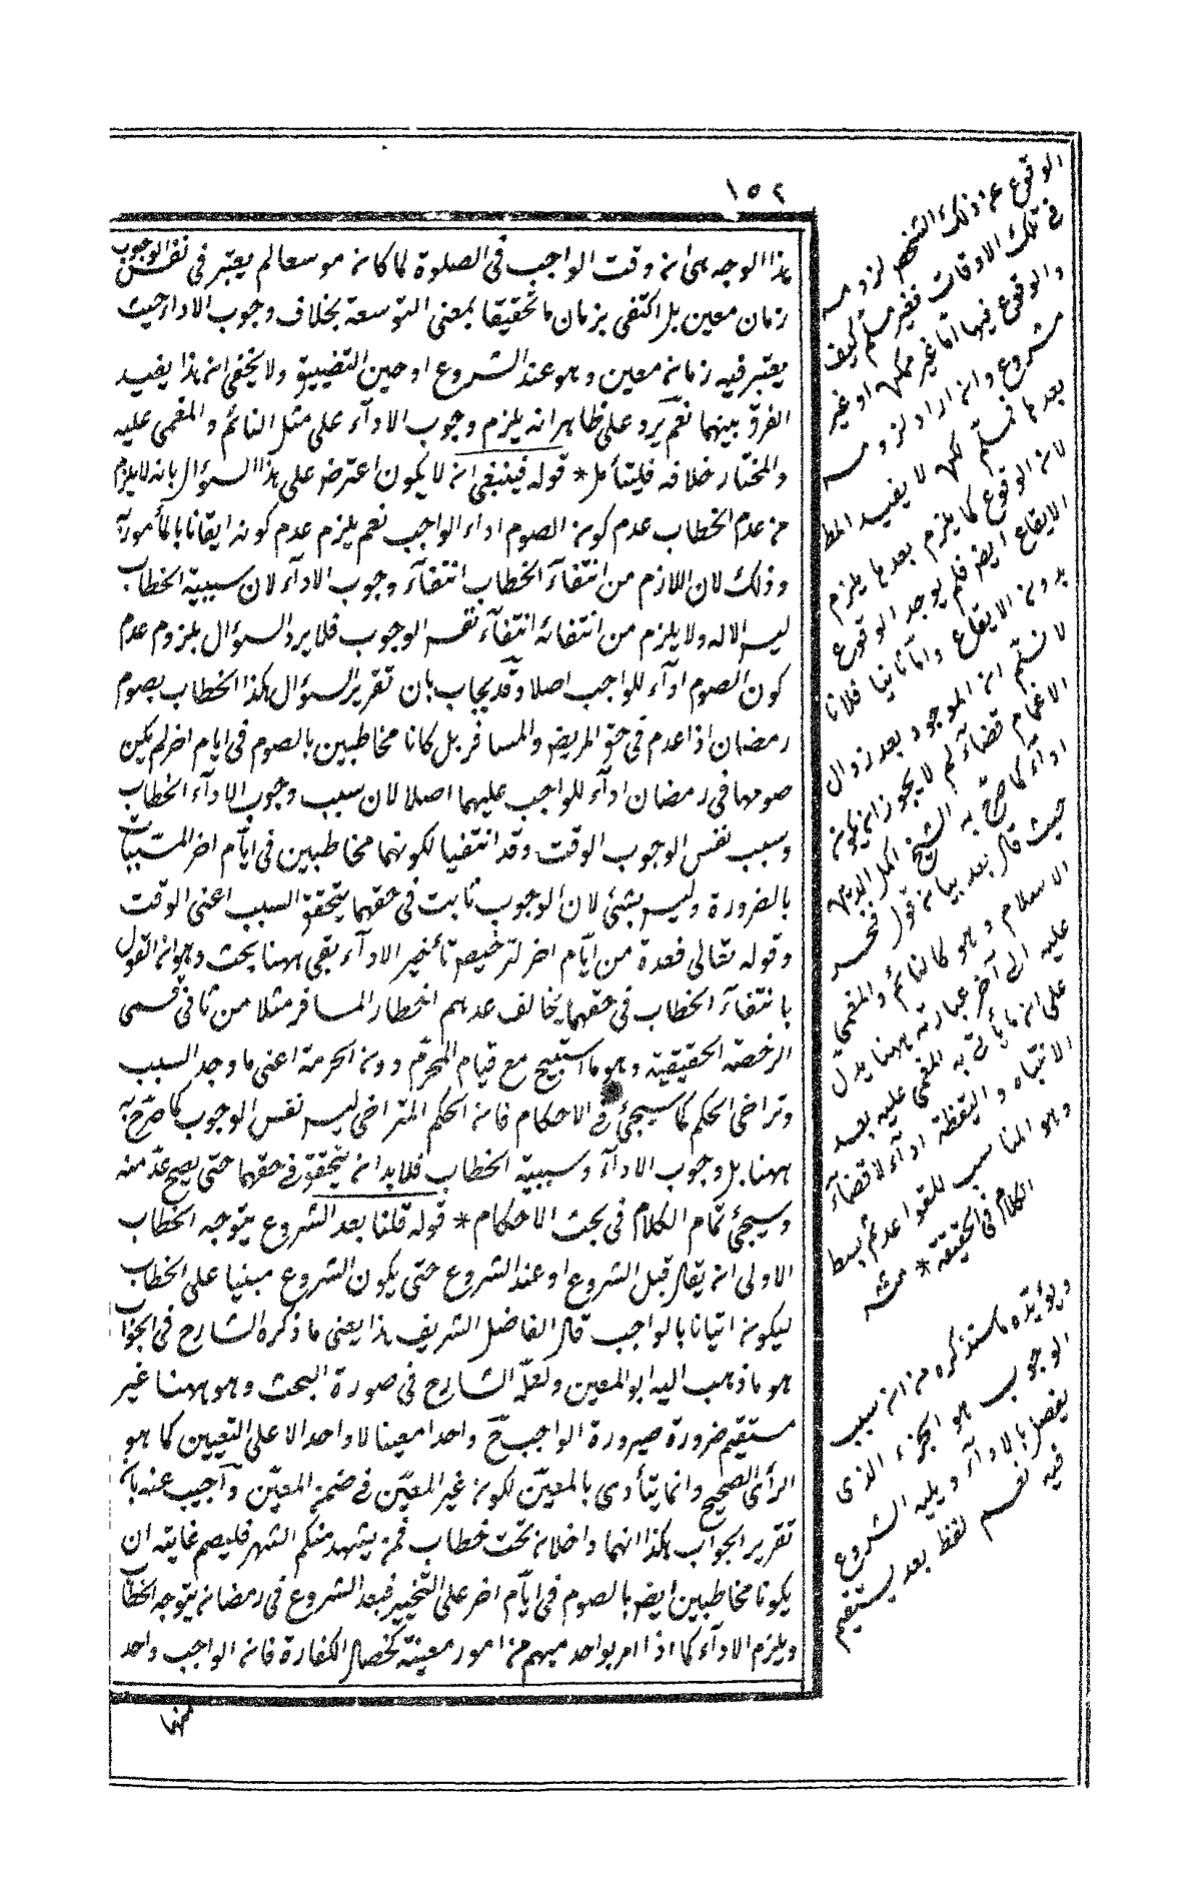 ١٥٢
هذا الوجه هى ان وقت الواجب فى الصلوة لما كان موسعا لم يعتبر فى نفس الوجوب
زمان معين بل اكتفى بزمان ما تحقيقا لمعنى التوسعة بخلاف وجوب الاداء حيث
يعتبر فيه زمان معين وهو عند الشروع او حين التضييق ولا يخفى ان هذا يفيد
الفرق بينهما نعم يرد على ظاهر انه يلزم وجوب الادآء على مثل النائم والمغمى عليه
والمختار خلافه فليتأمل * قوله فينبغى ان لا يكون اعترض على هذا السؤال بانه لا يلزم
من عدم الخطاب عدم كون الصوم اداء الواجب نعم يلزم عدم كونه ايقانا بالمأمور به
وذلك لان اللازم من انتفاء الخطاب انتفآء وجوب الادآء لان سببية الخطاب
ليس الا له ولا يلزم من انتفائه انتفآء نفس الوجوب فلا يرد السؤال بلزوم عدم
كون الصوم ادآء للواجب اصلا وقد يجاب بان تقرير السؤال هكذا الخطاب بصوم
رمضان اذا عدم فى حق المريض والمسافر بل كانا مخاطبين بالصوم فى ايام اخر لم يكن
صومهما فى رمضان ادآء للواجب عليهما اصلا لان سبب وجوب الادآء الخطاب
وسبب نفس الوجوب الوقت وقد انتفيا لكونهما مخاطبين فى ايّام اخر المسببات
بالضرورة وليس بشئ لان الوجوب ثابت فى حقهما يتحقق السبب اعنى الوقت
وقوله تعالى فعدة من ايّام اخر لترخيص تأخير الادآء بقى ههنا بحث وهو ان القول
بانتفآء الخطاب فى حقهما يخالف عدهم افطار المسافر مثلا من ثانى قسمى
الرخصة الحقيقية وهو ما استبيح مع قيام المحرّم دون الحرمة اعنى ما وجد السبب
وتراخى الحكم كما سيجئ فى الاحكام فان الحكم المتراخى ليس نفس الوجوب كما صرّح به
ههنا بل وجوب الادآء وسببية الخطاب فلا بد ان يتحقق فى حقهما حتى يصح عدّ منه
وسيجئ تمام الكلام فى بحث الاحكام * قوله قلنا بعد الشروع يتوجه الخطاب
الاولى ان يقال قبل الشروع او عند الشروع حتى يكون الشروع مبنيا على الخطاب
ليكون اتيانا بالواجب قال الفاضل الشريف هذا يعنى ما ذكره الشارح فى الجواب
هو ما ذهب اليه ابو المعين ولعلّ الشارع فى صورة البحث وهو ههنا غير
مستقيم ضرورة صيرورة الواجب ح واحدا معينا لا واحدا لا على التعيين كما هو
الرأى الصحيح وانما يتأدى بالمعيّن لكون غير المعيّن فى ضمن المعيّن وآجيب عنه بانّ
تقرير الجواب هكذا انهما داخلان تحت خطاب فمن يشهد منكم الشهر فليصم غايته ان
يكونا مخاطبين ايضا بالصوم فى ايّام اخر على التخيير فبعد الشروع فى رمضان يتوجه الخطاب
ويلزم الادآء كما اذا امر بواحد مبهم من امور معينة كخصال الكفارة فان الواجب واحد
منها
الوقوع عن ذلك الشخص لزومه
فى تلك الاوقات فغير مسلم كيف
والوقوع فيها اما غير ممكن او غير
مشروع وان اراد لزومه
بعدها فمسلّم لكن لا يفيد المط
لان الوقوع كما يلزم بعدها يلزم
الايقاع ايضا فلم يوجد الوقوع
بدون الايقاع وامّا ثانيا فلانا
لا نسلّم ان الموجود بعد زوال
الاغماء قضاء لم لا يجوز ان يكون
ادآء كما صرّح به الشيخ اكمل الدين
حيث قال بعد بيان قول فخر
الاسلام وهو كالنائم والمغمى
عليه الى آخر عبارته ههنا يدل
على ان ما يأتى به المغمى عليه بعد
الانتباه واليقظة ادآء لا قضآء
وهو المناسب للقواعد ثم بسط
الكلام فى الحقيقة * منه
ويؤيّده ما ستذكره من ان سبب
الوجوب هو الجزء الذى
يتصل بالادآء ويليه الشروع
فيه نفسه لفظ بعد يستقيم